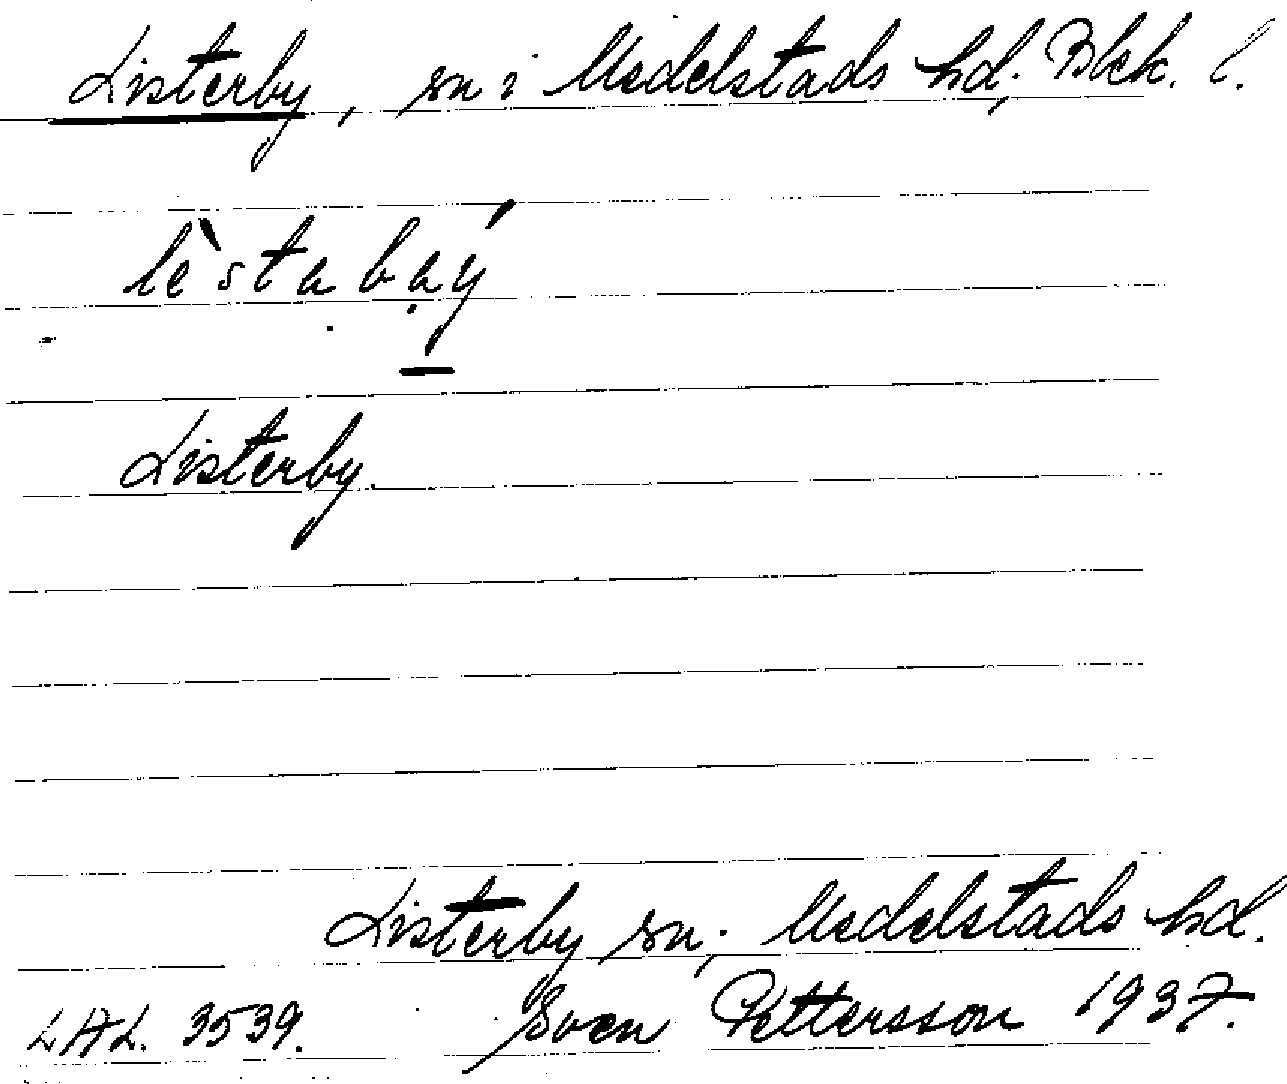 Listerby, sn i Medelstads hd, Blek. l.
lèstạbạý
Listerby.
Listerby sn, Medelstads hd.
LAL. 3539. Sven Pettersson 1937.